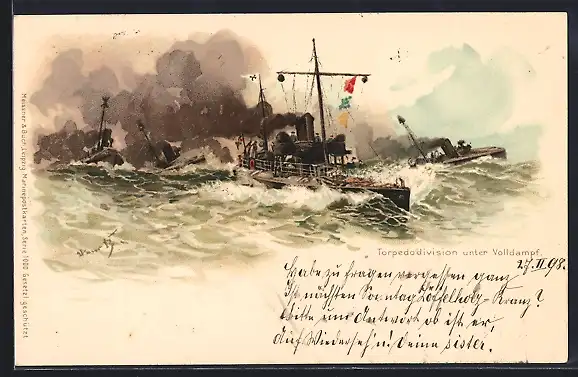 Meissner & Buch, Leipzig Marinepostkarten, Serie 1000 Gesetzl. geschützt
Torpedodivision unter Volldampf.
27. II 98.
Habe zu fragen vergessen ganz
Ist nächsten Sonntag Löffelholz-Kranz?
bitte um Antwort ob ist er,
Auf Wiederseh'n! Deine sister.